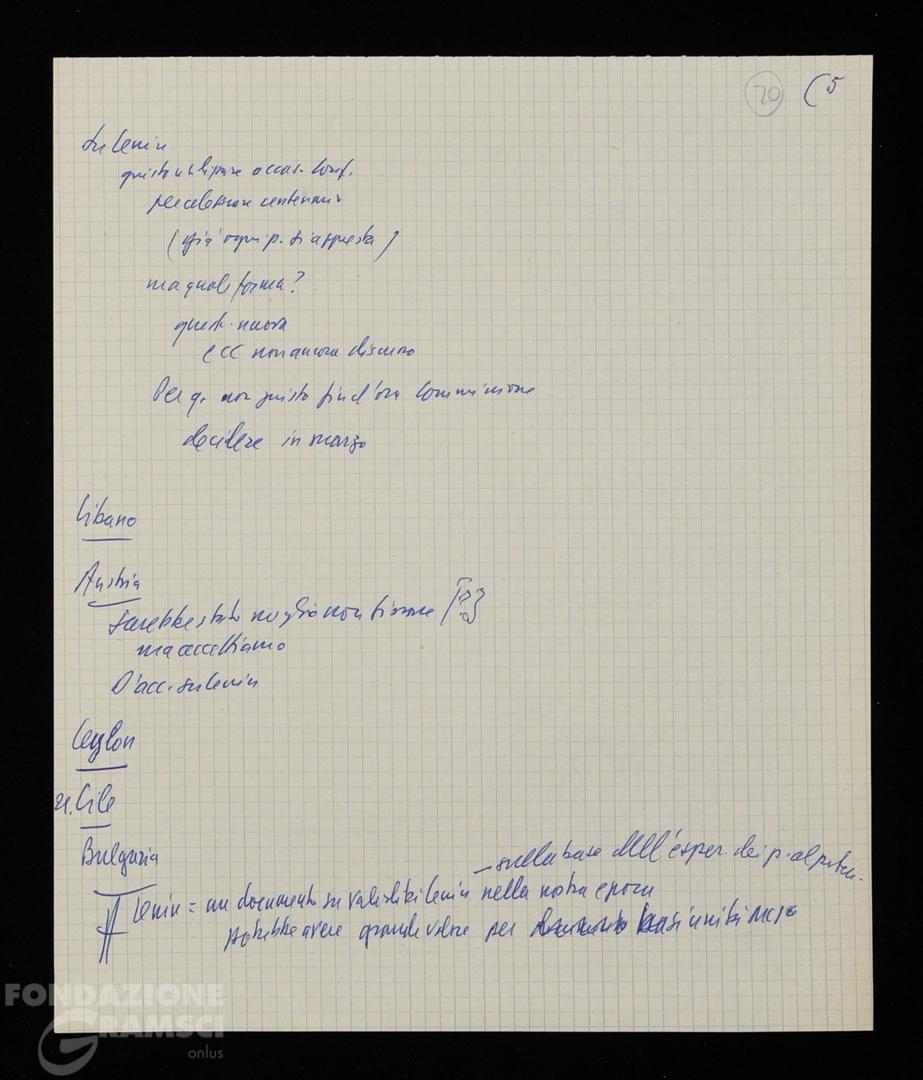 20 (5
Su Lenin
giusto utilizzare occas. Conf.
per celebrare centenario
(già ogni p. si appresta)
ma quale forma?
quest. nuova
e CC non ancora discusso
Per q. non giusto fin d'ora commissione
decidere in marzo
Libano
Austria
Sarebbe stato meglio non fissare [?]
ma accettiamo
D'acc. su Lenin
Ceylon
Cile
Bulgaria
– sulla base dell'esper. dei p. al potere
Lenin = un documento su validità Lenin nella nostra epoca
potrebbe avere grande valore per unità
FONDAZIONE
GRAMSCI
onlus